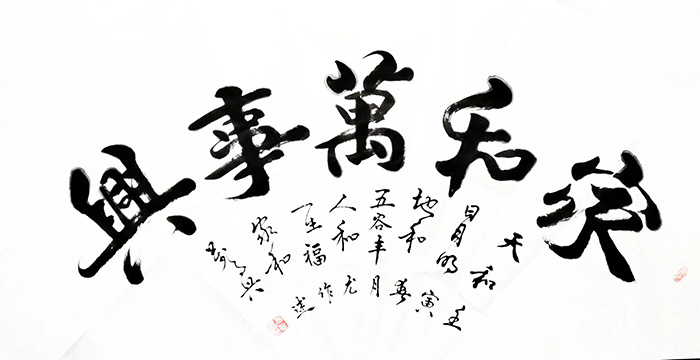 家和萬事興
天和
日月明
地和
五谷丰
人和
福
家和
万事兴
壬寅春月尤作建